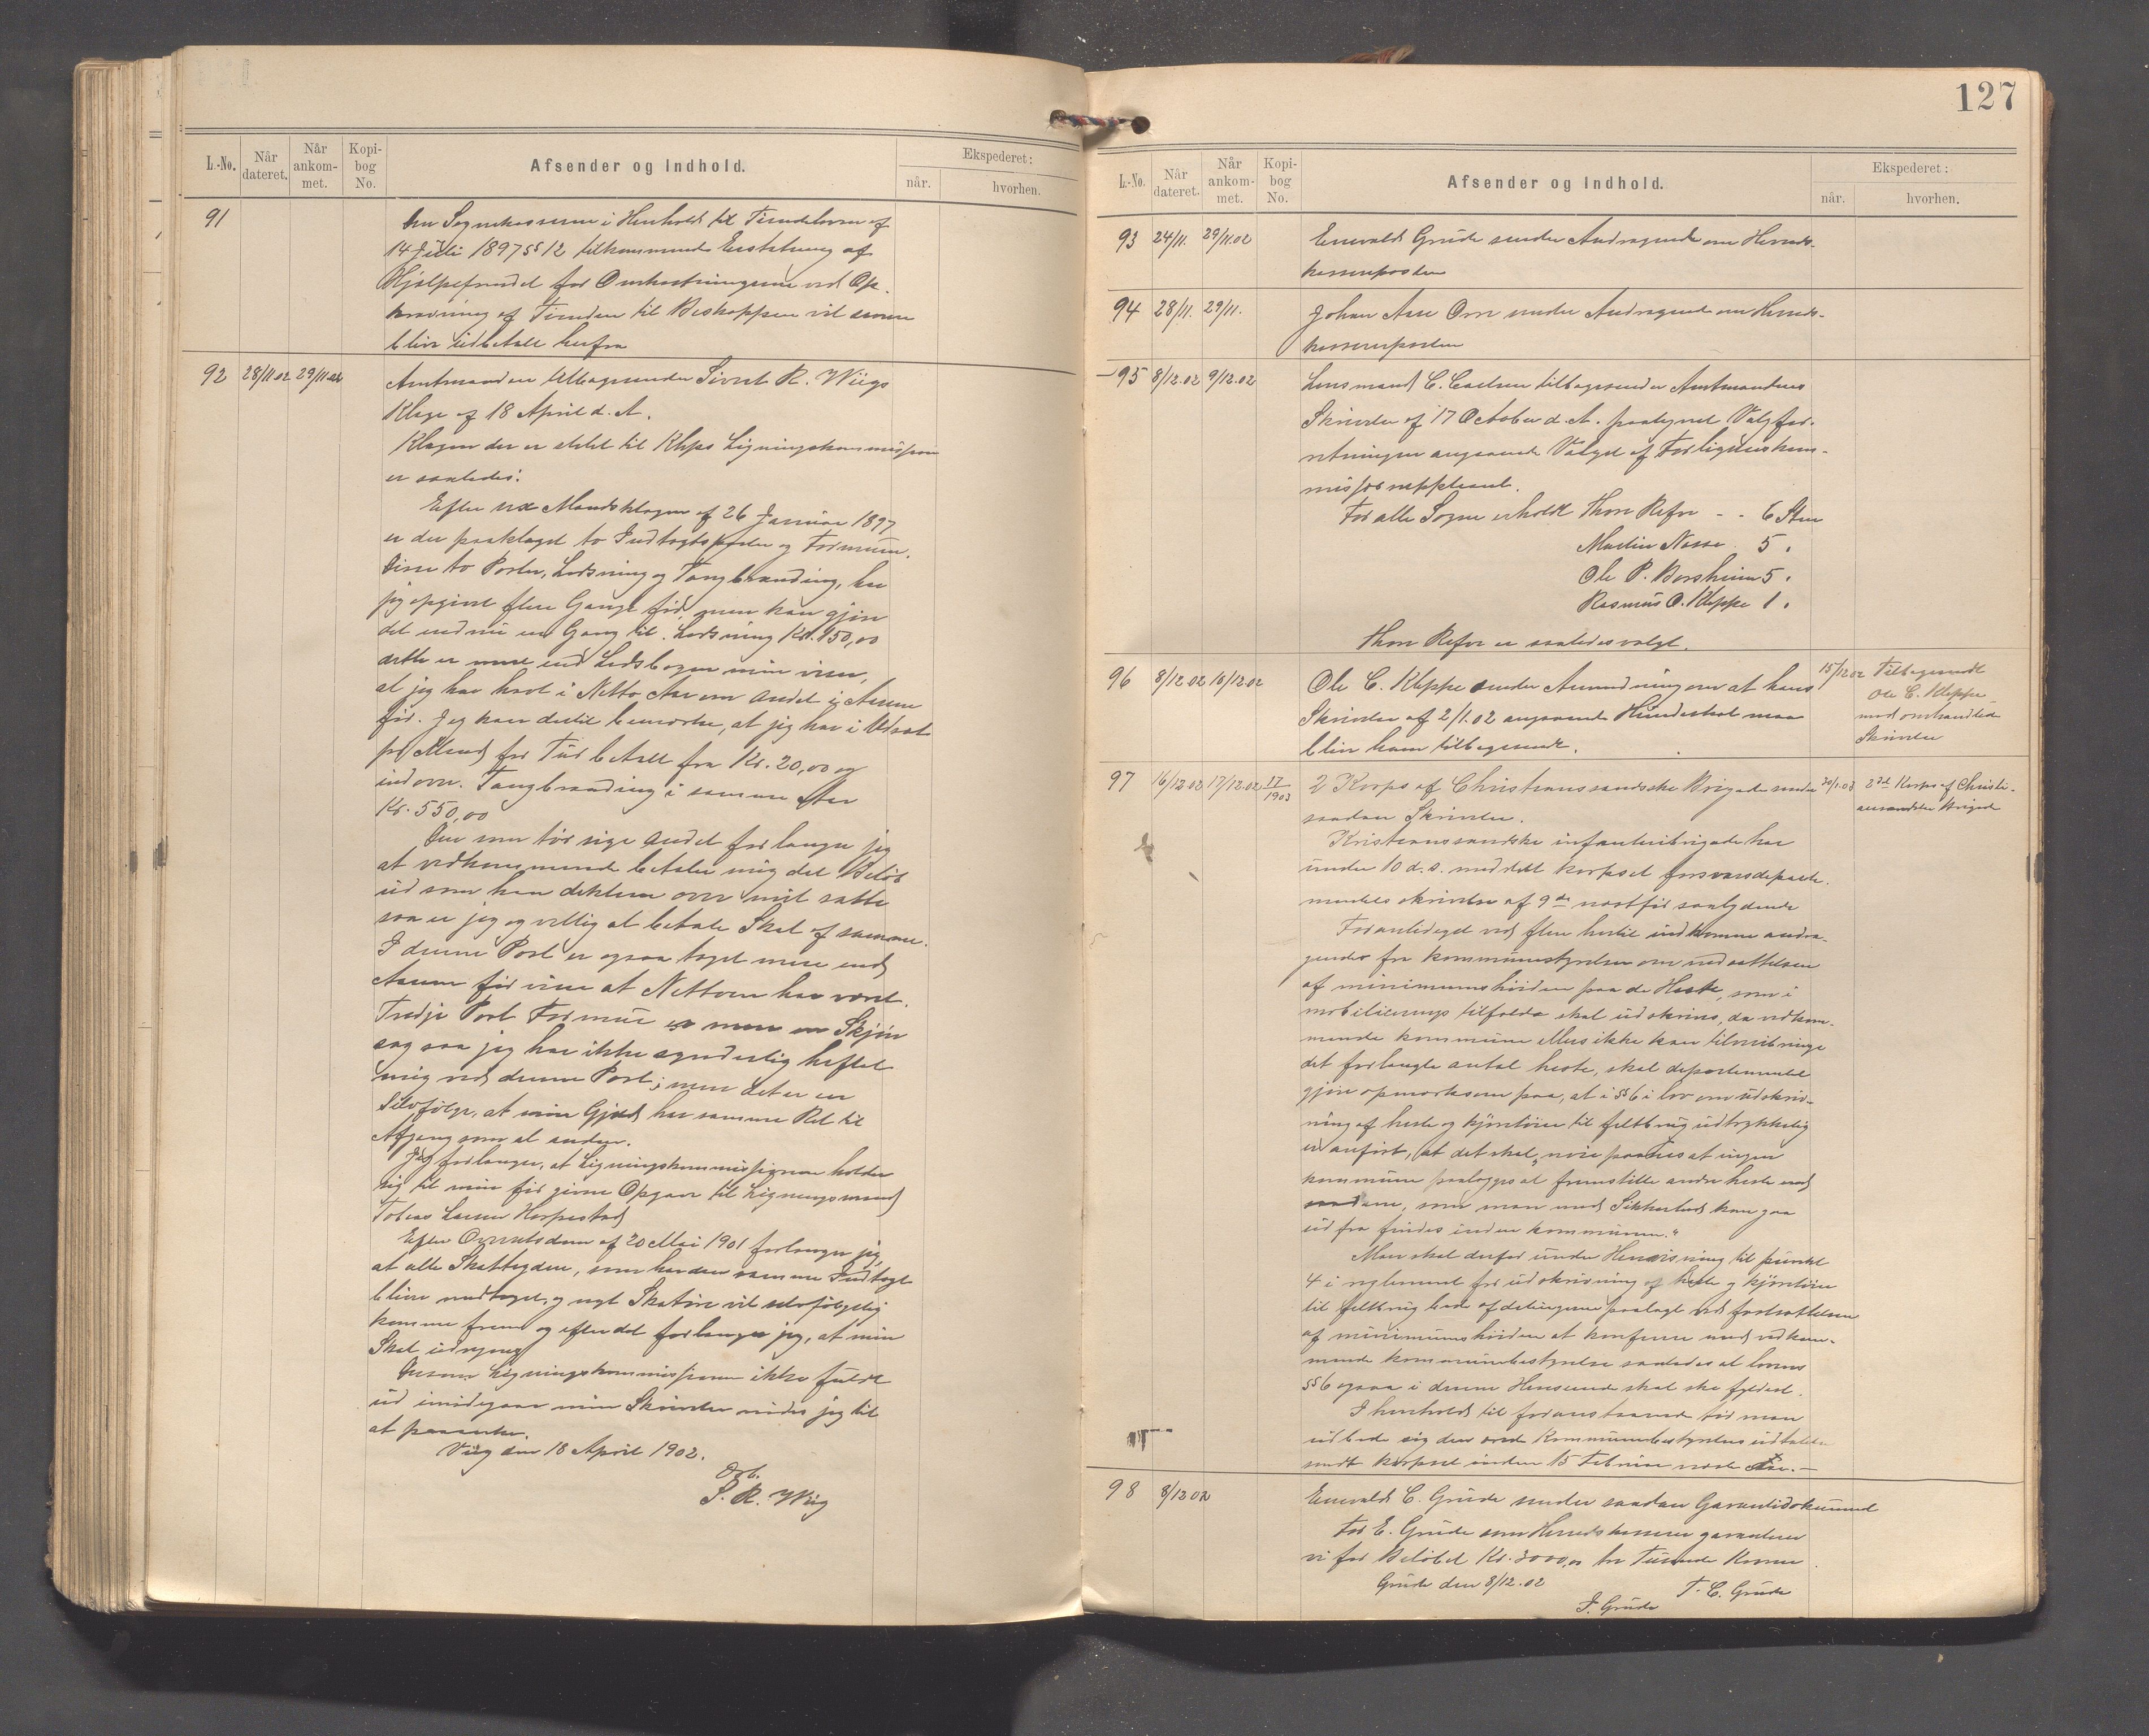 L.-No. Når dateret. Når ankommet. Kopibog No. Afsender og Indhold. Ekspederet: når. hvorhen.
91
den Sognekasserne i Henhold til Tiendeloven af
14 Juli 1897 § 12 tilkommende Erstatning af
Hjælpefondet for Omkostningerne ved Op-
krævning af Tienden til Biskoppen vil
blive udbetalt herfra
92 28/11 02 29/11 02 Amtmanden tilbagesender Sivert R. Wiigs
Klage af 18 April d. A.
Klagen der er stilet til Kleps Ligningskommission
er saaledes:
Efter Mandsklagen af 26 Januar 1897
er der paaklaget to Indtægtsposter og Formuen.
Disse to Poster, Lodsning og Tangbrænding, har
jeg opgivet flere Gange før, men kan gjøre
det endnu en Gang til. Lodsning Kr. 450,00
dette er mere end Lodsbogen min viser,
at jeg har havt i Netto Aar om andet i Aarene
før. Jeg kan dertil bemærke, at jeg har i Udsat
pr Mand for Tur betalt fra Kr. 20,00 og
indover. Tangbrænding i samme Aar
Kr. 550,00
Den som tør sige andet forlanger jeg
at vedkommende betaler mig det Beløb
ud som han dikterer over mit satte
saa er jeg og villig at betale Skat af samme.
I denne Post er ogsaa taget mere end
Aarene før viser at Nettoen har været.
Tredje Post Formue er mere en Skjøn
sag saa jeg har ikke synderlig heftet
mig ved denne Post; men det er en
Selvfølge, at min Gjæld har samme Ret til
Afgang som al anden.
Jeg forlanger, at Ligningskommissionen holder
sig til min før givne Opgave til Ligningsmand
Tobias Larsen Horpestad
Efter Overretsdom af 20 Mai 1901 forlanger jeg
at alle Skatteydere, som har den samme Indtægt
blive medtaget, og nyt Skøn vil selvfølgelig
komme frem og efter det forlanger jeg, at min
Skat udregnes
Dersom Ligningskommissionen ikke fuldt
ud imødegaar min Skrivelse nødes jeg til
at paaanke.
Viig den 18 April 1902.
Ærb.
S. R. Wiig
127
L.-No. Når dateret. Når ankommet. Kopibog No. Afsender og Indhold. Ekspederet: når. hvorhen.
93 24/11. 29/11.02 Enevald Grude sender Andragende om Herreds-
kasserposten
94 28/11. 29/11. Johan Aase Orre sender Andragende om Herreds-
kasserposten
95 8/12.02 9/12.02 Lensmand C. Carlsen tilbagesender Amtmandens
Skrivelse af 17 October d. A. paategnet Valgfor-
retningen angaaende Valget af Forligelseskom-
missærsuppleant.
For alle Sogne erholdt Thore Refve - - 6 Stem
Martin Nesse 5 "
Ole P. Borsheim 5 "
Rasmus O. Kleppe 1 "
Thore Refve er saaledes valgt.
96 8/12 02 10/12 02 Ole C. Kleppe sender Anmodning om at hans
Skrivelse af 2/1.02 angaaende Hundeskat maa
blive ham tilbagesendt.
15/12 02 Tilbagesendt
Ole C. Kleppe
med omhandlede
Skrivelse
97 16/12.02 17/12.02 17/1903 2 Korps af Christianssandske Brigade sender
saadan Skrivelse.
30/1.03 2det Korps af Christi-
anssandske Brigade
Kristianssandske infanteribrigade har
under 10 d.s. meddelt korpset forsvarsdeparte-
mentets skrivelse af 9de næstfør saalydende
Foranlediget ved flere hertil indkomne andra-
gender fra kommunestyrelser om nedsættelsen
af minimumshøiden paa de Heste, som i
mobiliserings tilfælde skal udskrives, da vedkom-
mende kommune ellers ikke kan tilveiebringe
det forlangte antal heste, skal departementet
gjøre opmærksom paa, at i § 6 i lov om udskriv-
ning af heste og kjøretøier til feltbrug udtrykkelig
er anført, at det skal "nøie paasees at ingen
kommune paalægges at fremstille andre heste end
saadanne, som man med Sikkerhed kan gaa
ud fra findes inden kommunen."
Man skal derfor under Henvisning til punkt
4 i reglement for udskrivning af heste og kjøretøier
til feltbrug have afdelingerne paalagt ved fastsættelsen
af minimumshøiden at konferere med vedkom-
mende kommunebestyrelse saaledes at lovens
§ 6 ogsaa i denne Henseende skal ske fyldest.
I henhold til foranstaaende tør man
udbede sig den ærede Kommunebestyrelses udtalelse
sendt korpset inden 15 Februar næste Aar. —
98 8/12 02 Enevald C. Grude sender saadan Garantidokument
For E. Grude som Herredskasserer garanterer
vi for Beløbet Kr. 3000,00 tre Tusende Kroner.
Grude den 8/12.02
T. C. Grude
J. Grude